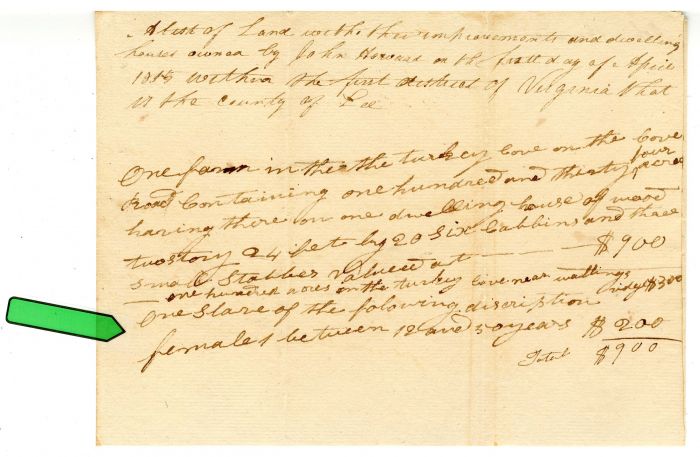 A list of Land with the improvements and dwelling
houses owned by John Howard on the first day of April
1815 within the first district of Virginia that
is the county of Lee
One farm in the the turkey Cove on the Cove
Road Containing one hundred and thirty four acres
having there on one dwelling house of wood
two story 24 feet by 20 Six Cabbins and three
small Stables valued at $900
one hundred acres on the turkey Cove near wallings ridge $300
One Slave of the folowing discription
females 1 between 12 and 50 years $200
Total $900